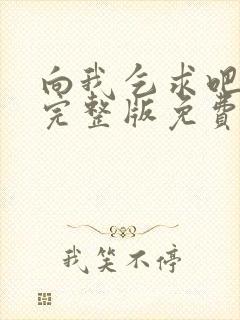 向我乞求吧
完整版免费
我笑不停